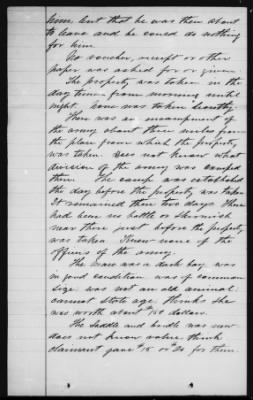 him but that he was then about
to leave and he could do nothing
for him.
No voucher, receipt or other
paper was asked for or given.
The property was taken in the
day time from morning until
night. None was taken
There was an encampment of
the army about three miles from
the place from which the property
was taken. Does not know what
division of the army was camped
there. The camp was established
the day before the property was taken
It remained there two days. There
had been no battle or skirmish
near there just before the property
was taken. Knew none of the
officers of the army.
The mare was a dark bay was
in good condition was of common
size was not an old animal
cannot state age thinks she
was worth about 150 dollars.
The saddle and bridle was new
does not know value think
claimant gave $18 or $20 for them.